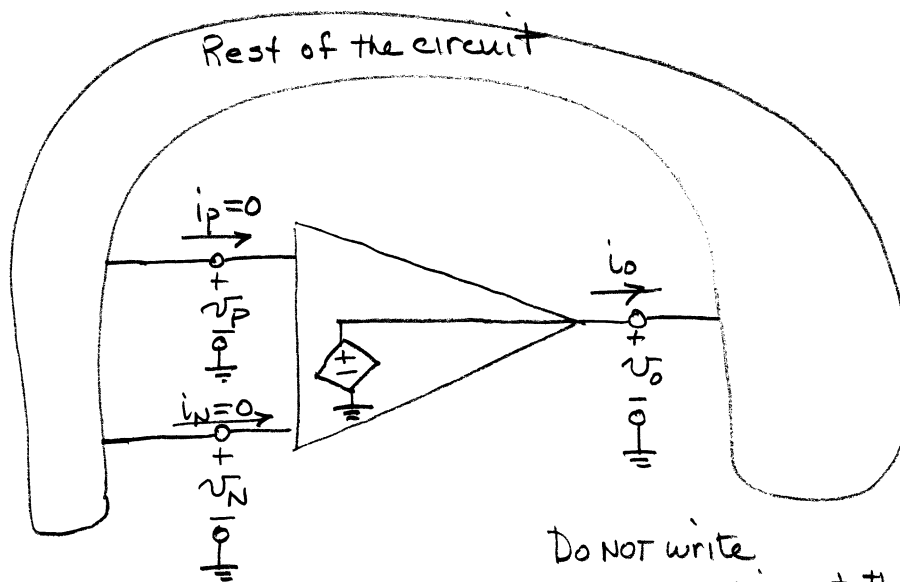 Rest of the circuit
iP=0
+
vP
−
iN=0
+
vN
−
+
−
io
+
vo
−
Do NOT write